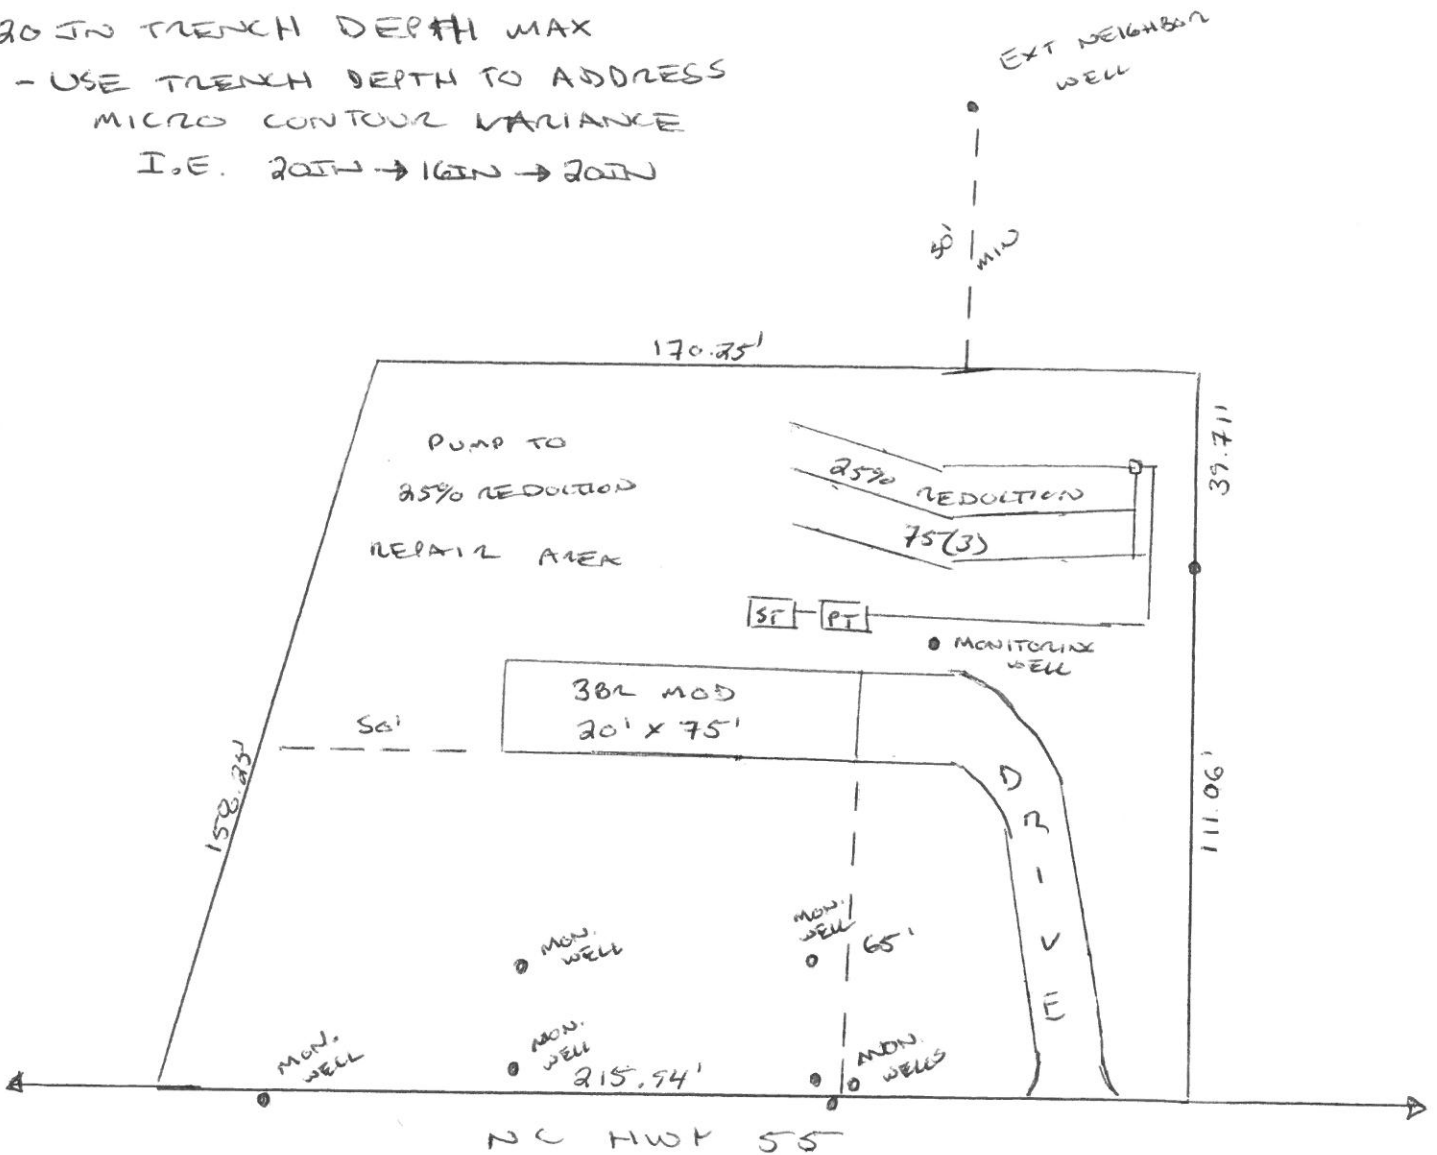 20 IN TRENCH DEPTH MAX
- USE TRENCH DEPTH TO ADDRESS
MICRO CONTOUR VARIANCE
I.E. 20IN → 16IN → 20IN
EXT NEIGHBOR
WELL
50'
MIN
170.25'
39.711
PUMP TO
25% REDUCTION
REPAIR AREA
25%
REDUCTION
75(3)
ST
PT
MONITORING
WELL
3BR MOD
20' X 75'
50'
158.25'
111.06'
DRIVE
65'
MON.
WELL
MON.
WELL
MON.
WELL
MON.
WELL
MON.
WELLS
215.94'
NC HWY 55